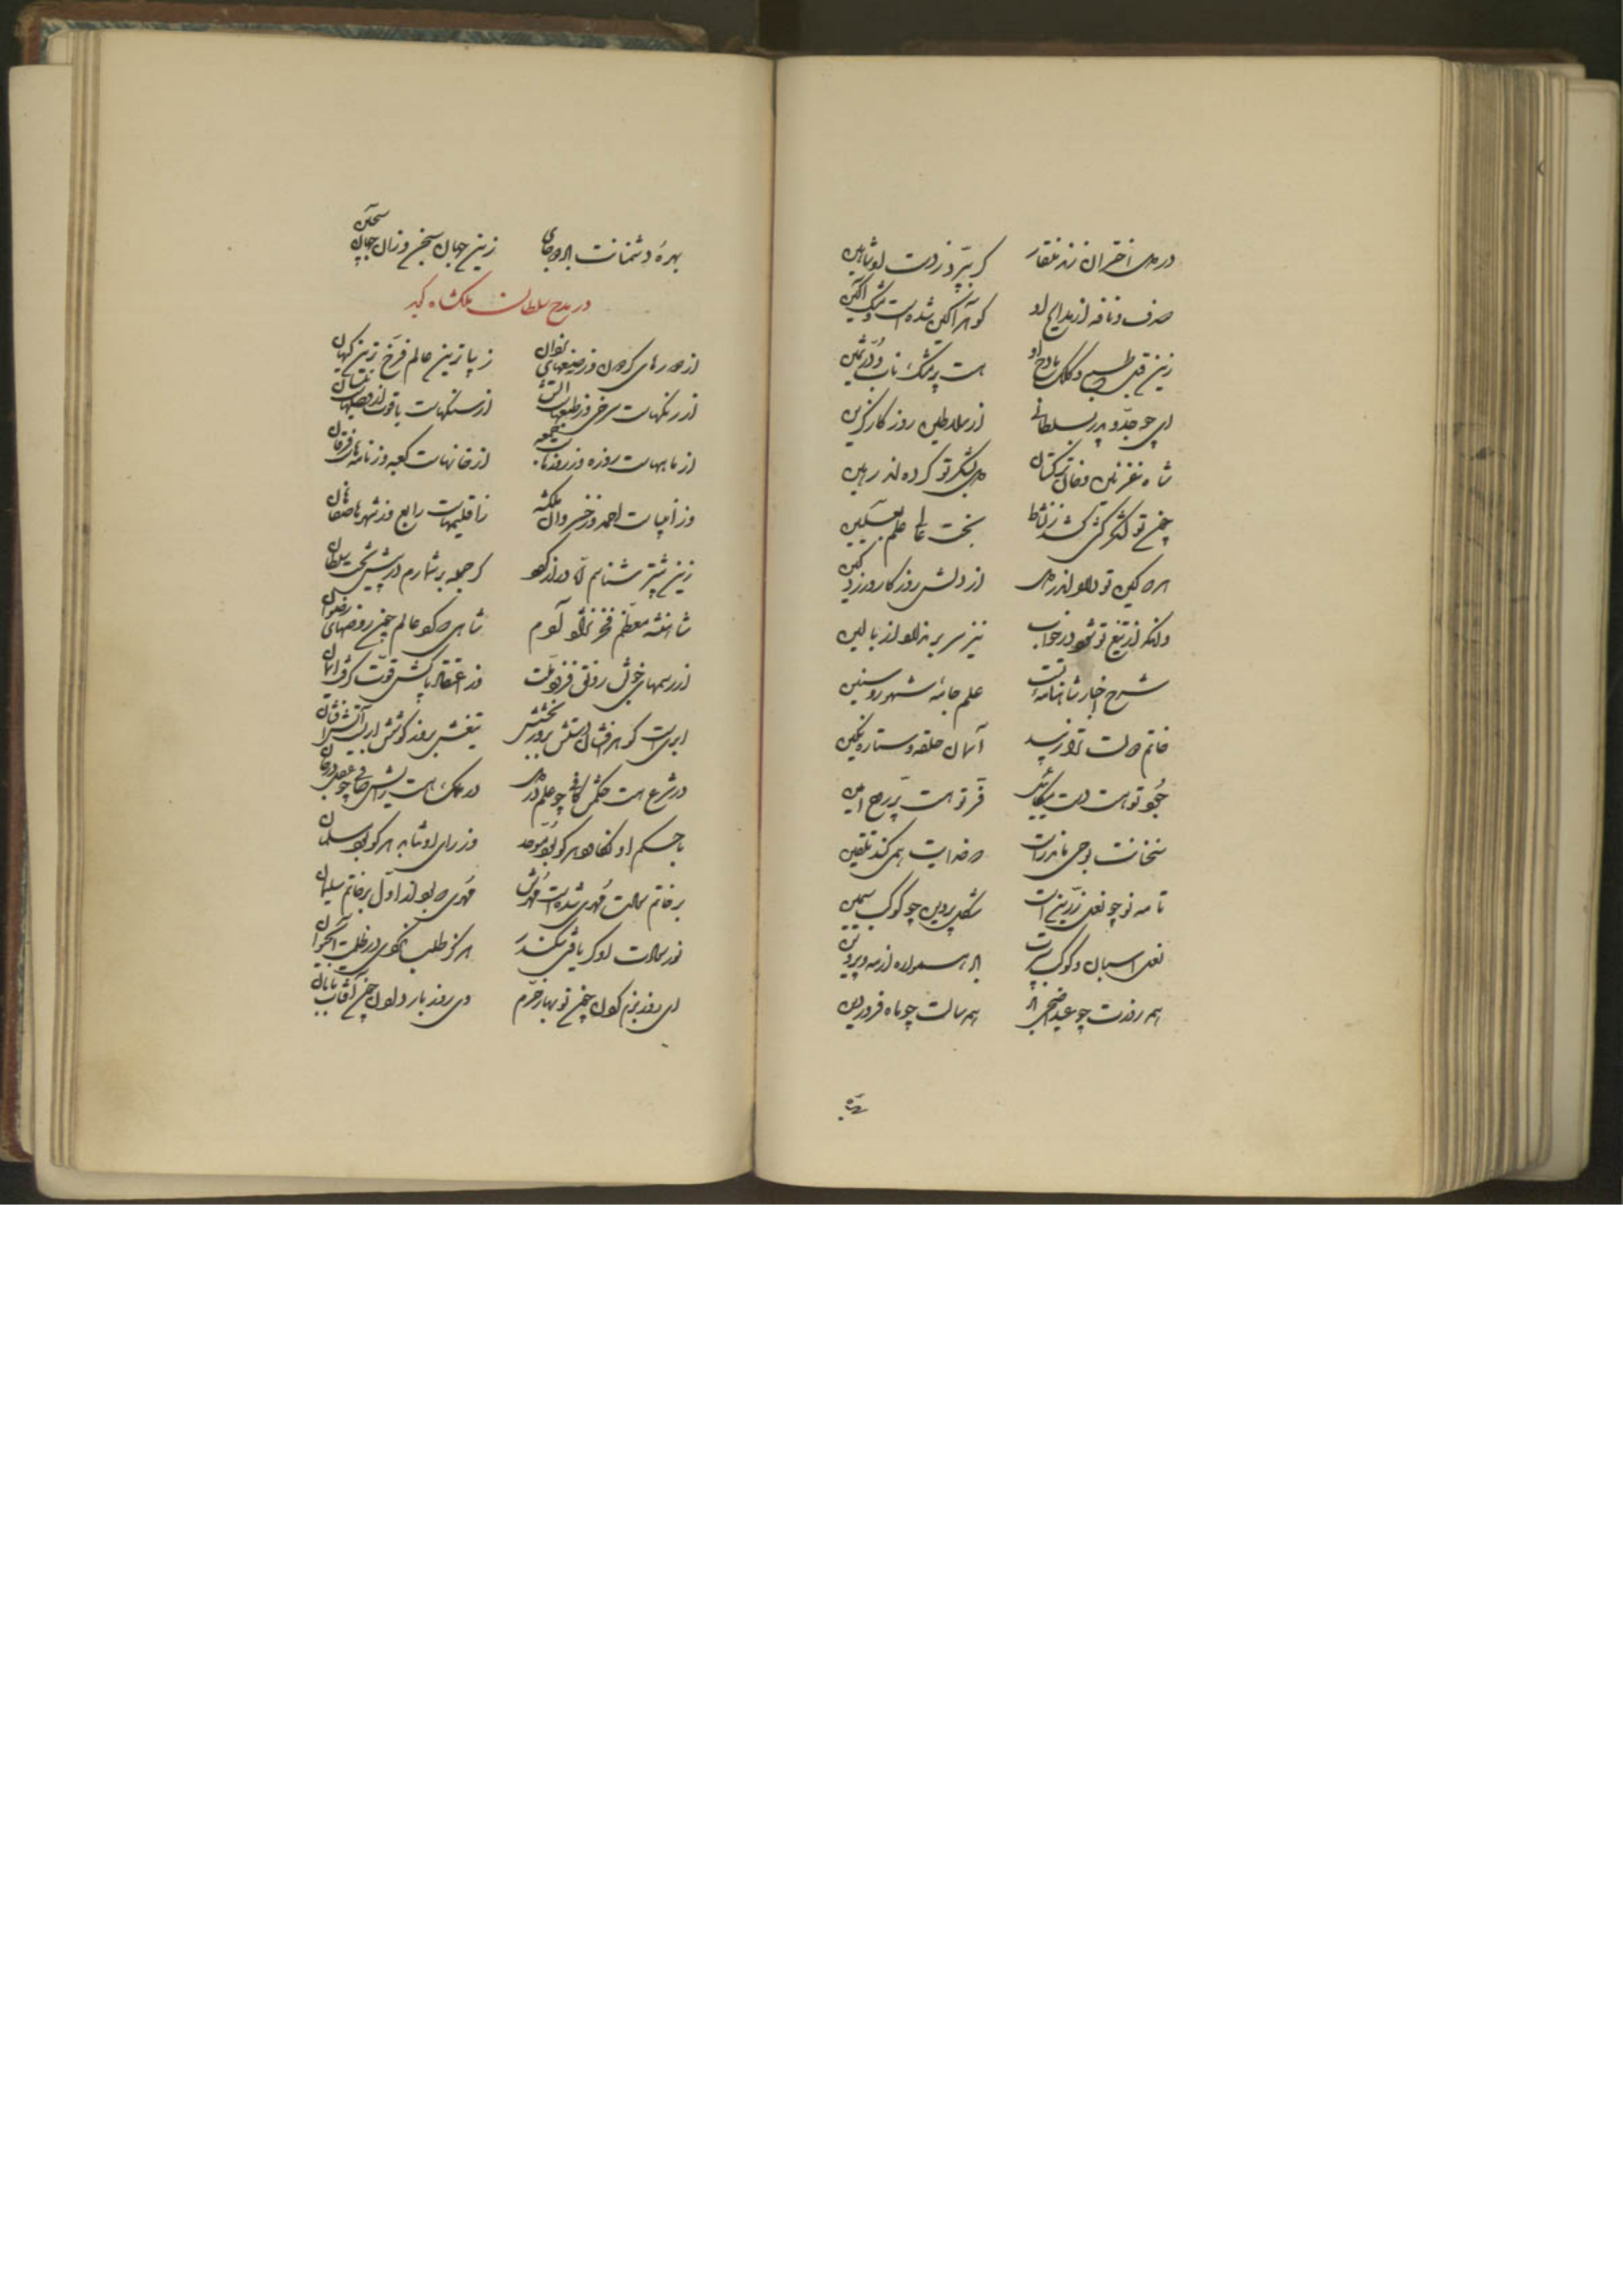 در دل اختران زند منقار گر بپرد ز دست او شاهین
صدف و نافه از مدایح او گوهر آگین شدست و مشک آگین
زین قبل طبع و کلک مادح او هست پر مشک ناب و در ثمین
ای چو جد و پدر بسلطانی از سلاطین روزگار گزین
شاه غزنین و خان ترکستان دل بشکر تو کرده اند رهین
چون تو لشکر کشی کشد ز نشاط بخت عالی علم بعلیین
هر که کین تو دارد اندر دل از دلش روزگار روزد کین
وانکه از تیغ تو شود در خواب نیز سر بر ندارد از بالین
شرح اخبار شاهنامه تست علم جامه شهور و سنین
خاتم دولت ترا زیبد آسمان حلقه و ستاره نگین
جود تو هست دست میکائیل فر تو هست پر روح امین
سخنانت بوحی ماند راست که خدایت همی کند تلقین
تا مه نو چو نعل زرین است شکل پروین چو کوکب سیمین
نعل اسبان و کوکب سپرت باد همواره از مه و پروین
همه روزت چو عید اضحی باد همه سالت چو ماه فروردین
بهره
بهره دشمنانت باد دو جای زین جهان سجن و زان جهان سجین
در مدح سلطان ملکشاه گوید
از دورهای گردون وز صنعهای یزدان زیباترین عالم فرخ ترین کیهان
از رنگهاست سرخی وز طبعهاست آتش از سنگهاست یاقوت از فصلهاست نیسان
از ماههاست روزه وز روزهاست جمعه از خانهاست کعبه وز نامهاست فرقان
وز انبیاست احمد وز خسروان ملکشه ز اقلیمهاست رابع وز شهرها صفاهان
زین بیشتر شناسم نادر از گهر گر جمله بر شمارم در پیش تخت سلطان
شاهنشه معظم فخر نژاد آدم شاهی که کرد عالم چون روضهای رضوان
از رسمهای خوبش رونق فزود ملت وز اعتقاد پاکش قوت گرفت ایمان
ابریست گوهر افشان دستش بروز بخشش تیغش بروز کوشش ابریست آتش افشان
در شرع هست حکمش کافی چو علم در دل در ملک هست رایش صافی چو عقل در جان
با حکم او نگاهد هر کو بود موحد وز رای او نتابد هر کو بود مسلمان
بر خاتم رسالت مهری شدست مهرش مهری که بود از اول بر خاتم سلیمان
نور رسالت او گر یافتی سکندر هرگز طلب نکردی در ظلمت آب حیوان
ای روز بزم کردن چون نوبهار خرم وی روز بار دادن چون آفتاب تابان